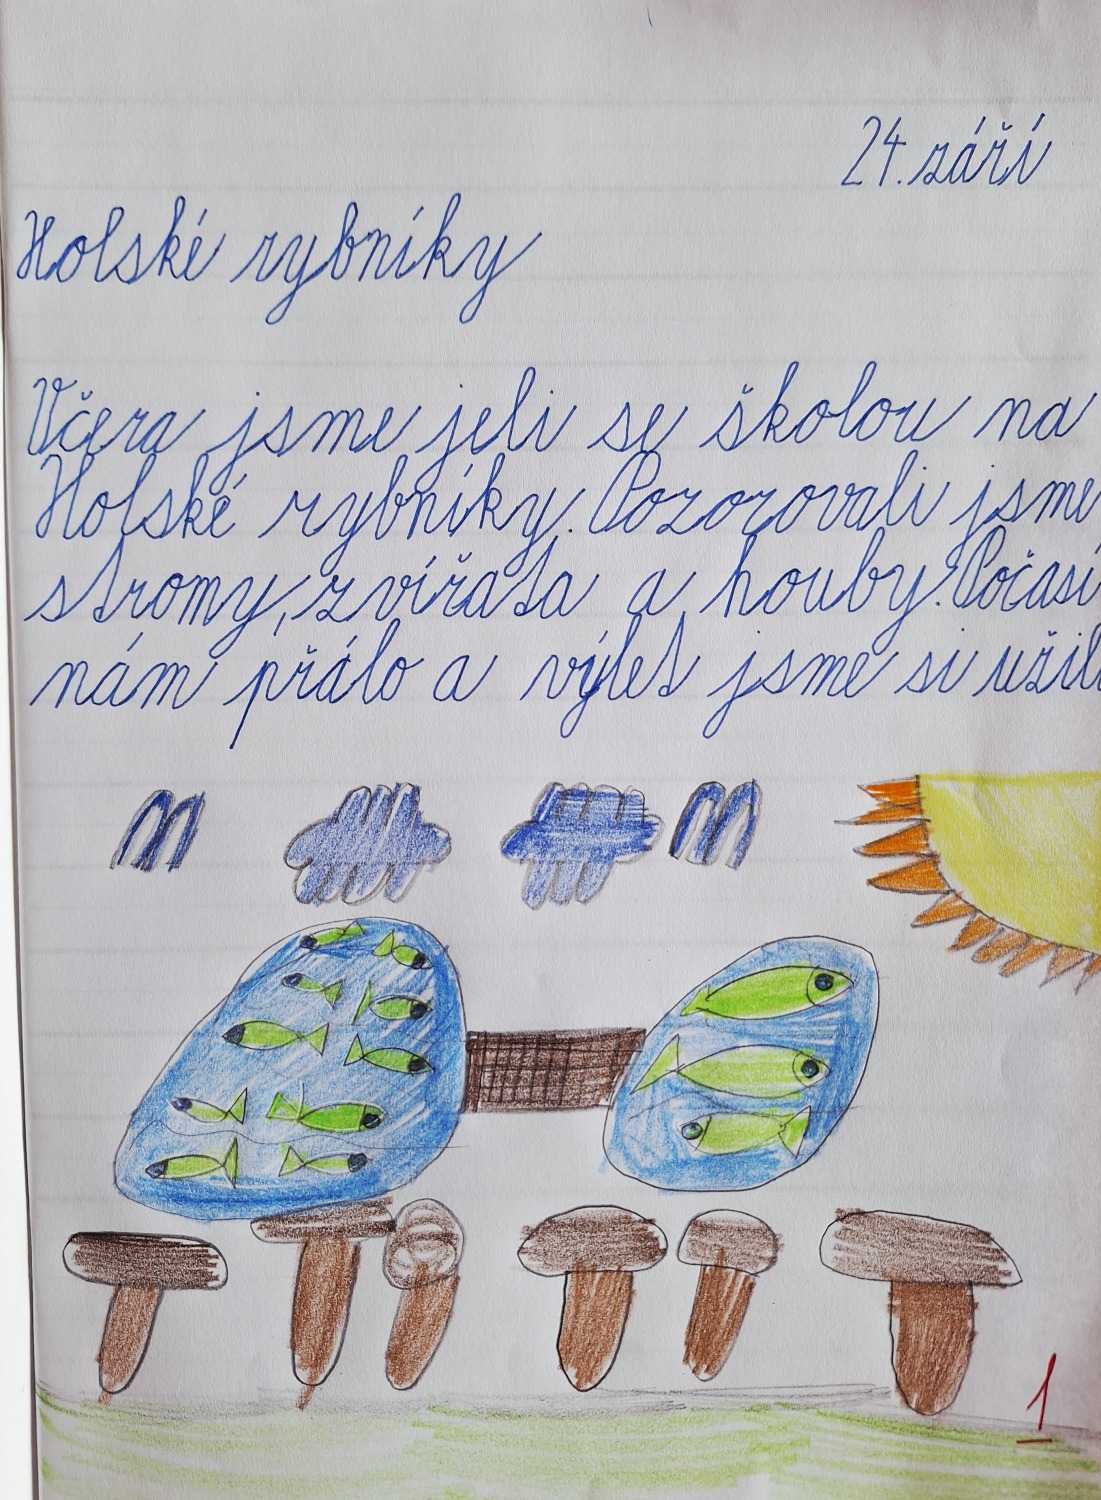 24. září
Holské rybníky
Včera jsme jeli se školou na
Holské rybníky. Pozorovali jsme
stromy, zvířata a houby. Počasí
nám přálo a výlet jsme si užili
1